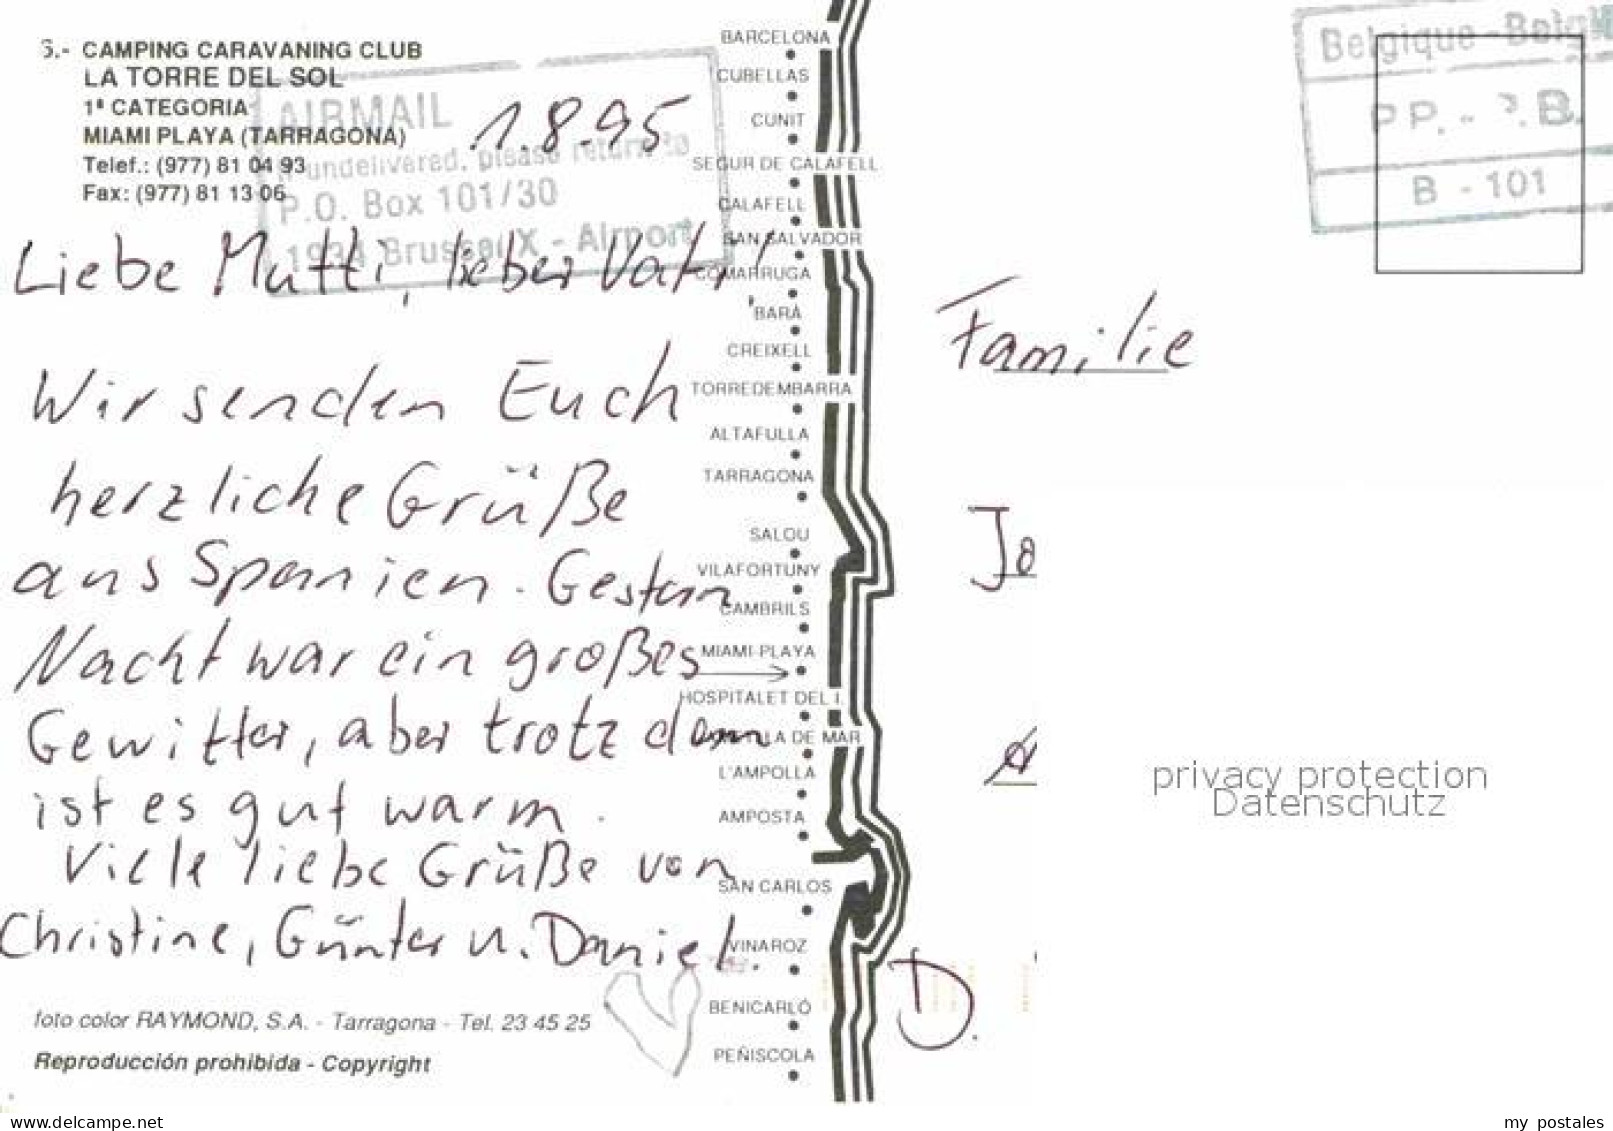 5.- CAMPING CARAVANING CLUB
LA TORRE DEL SOL
1ª CATEGORIA
MIAMI PLAYA (TARRAGONA)
Telef.: (977) 81 04 93
Fax: (977) 81 13 06
AIRMAIL
undelivered, please return to
P.O. Box 101/30
1934 Brussel X - Airport
1.8.95
Liebe Mutti, lieber Vati!
Wir senden Euch
herzliche Grüße
aus Spanien. Gestern
Nacht war ein großes
Gewitter, aber trotzdem
ist es gut warm.
Viele liebe Grüße von
Christine, Günter u. Daniel.
foto color RAYMOND, S.A. - Tarragona - Tel. 23 45 25
Reproducción prohibida - Copyright
BARCELONA
CUBELLAS
CUNIT
SEGUR DE CALAFELL
CALAFELL
SAN SALVADOR
COMARRUGA
BARÁ
CREIXELL
TORREDEMBARRA
ALTAFULLA
TARRAGONA
SALOU
VILAFORTUNY
CAMBRILS
MIAMI-PLAYA
HOSPITALET DEL I.
DE MAR
L'AMPOLLA
AMPOSTA
SAN CARLOS
VINAROZ
BENICARLÓ
PEÑISCOLA
Belgique - België
P.P. - P.B.
B - 101
Familie
Jo
D.
privacy protection
Datenschutz
delcampe.net
my_postales